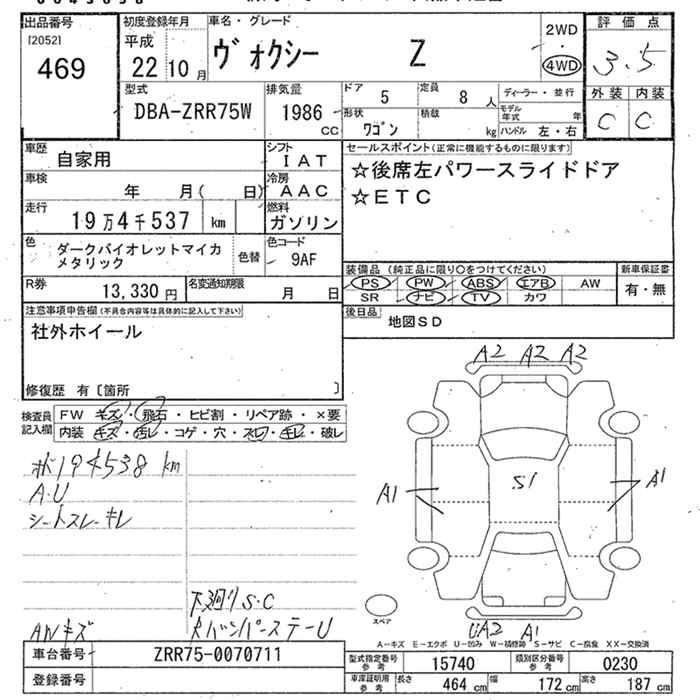 出品番号
[2052]
469
初度登録年月
平成
22 10 月
車名・グレード
ヴォクシー Z
2WD
4WD
評価点
3.5
外装 内装
C C
型式
DBA-ZRR75W
排気量
1986 cc
ドア 5
定員 8 人
形状 ワゴン
積載 kg
ディーラー・並行
モデル年式 年
ハンドル 左・右
車歴 自家用
シフト IAT
車検 年 月( 日)
冷房 AAC
走行 19万4千537 km
燃料 ガソリン
色 ダークバイオレットマイカメタリック
色替
色コード 9AF
R券 13,330円
名変通知期限 月 日
セールスポイント(正常に機能するものに限ります)
☆後席左パワースライドドア
☆ETC
装備品 (純正品に限り○をつけてください)
PS PW ABS エアB AW
SR ナビ TV カワ
新車保証書
有・無
後日品 地図SD
注意事項申告欄(不具合内容等は具体的に記入して下さい)
社外ホイール
修復歴 有〔箇所 〕
検査員記入欄
FW キズ・飛石・ヒビ割・リペア跡・×要
内装 キズ・汚レ・コゲ・穴・スレ・キレ・破レ
194538 km
A.U
シートスレ・キレ
下廻りS・C
AWキズ
バンパーステーU
A2 A2 A2
A1
S1
A1
UA2 A1
スペア
A-キズ E-エクボ U-凹み W-補修跡 S-サビ C-腐食 XX-交換済
車台番号 ZRR75-0070711
登録番号
型式指定番号参考 15740
類別区分番号参考 0230
車庫証明用参考 長さ 464 cm 幅 172 cm 高さ 187 cm